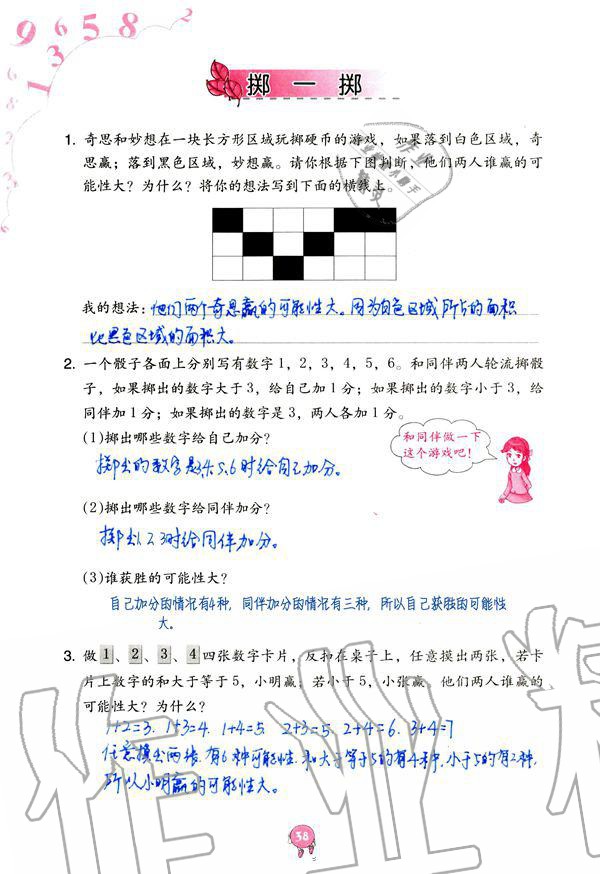 9 6 5 8 2
1 3
6 2 8 9
掷一掷
1. 奇思和妙想在一块长方形区域玩掷硬币的游戏，如果落到白色区域，奇
思赢；落到黑色区域，妙想赢。请你根据下图判断，他们两人谁赢的可
能性大？为什么？将你的想法写到下面的横线上。
我的想法：他们两个奇思赢的可能性大。因为白色区域所占的面积
比黑色区域的面积大。
2. 一个骰子各面上分别写有数字1，2，3，4，5，6。和同伴两人轮流掷骰
子，如果掷出的数字大于3，给自己加1分；如果掷出的数字小于3，给
同伴加1分；如果掷出的数字是3，两人各加1分。
(1)掷出哪些数字给自己加分？
和同伴做一下
这个游戏吧！
掷出的数字是3.4.5.6时给自己加分。
(2)掷出哪些数字给同伴加分？
掷出1.2.3时给同伴加分。
(3)谁获胜的可能性大？
自己加分的情况有4种，同伴加分的情况有三种，所以自己获胜的可能性
大。
3. 做1、2、3、4四张数字卡片，反扣在桌子上，任意摸出两张，若卡
片上数字的和大于等于5，小明赢；若小于5，小张赢。他们两人谁赢的
可能性大？为什么？
1+2=3. 1+3=4. 1+4=5. 2+3=5. 2+4=6. 3+4=7
任意摸出两张，有6种可能性，和大于等于5的有4种，小于5的有2种，
所以小明赢的可能性大。
38
作业精